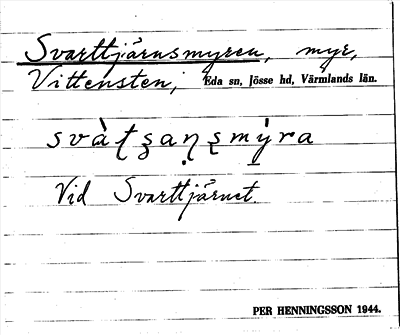 Svarttjärnsmyren, myr,
Vittensten, Eda sn, Jösse hd, Värmlands län.
Vid Svarttjärnet.
PER HENNINGSSON 1944.